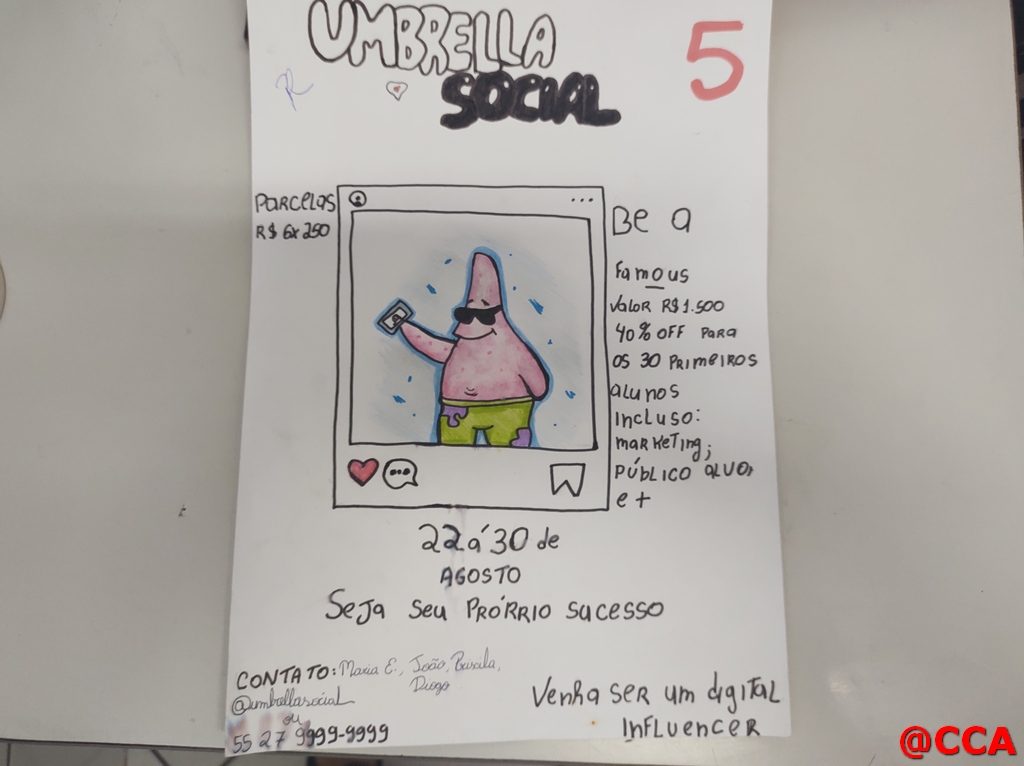 UMBRELLA
SOCIAL
5
R
PARCELAS
R$ 6x 250
Be a
Famous
VALOR R$1.500
40% OFF PARA
OS 30 PRIMEIROS
alunos
INCLUSO:
marketing;
PÚBLICO ALVO;
e +
22 á 30 de
AGOSTO
Seja seu PRÓRRIO sucesso
CONTATO: Maria E., João, Priscila,
Diogo
@umbrellasocial
ou
55 27 9999-9999
Venha ser um digital
INFLUENCER
@CCA